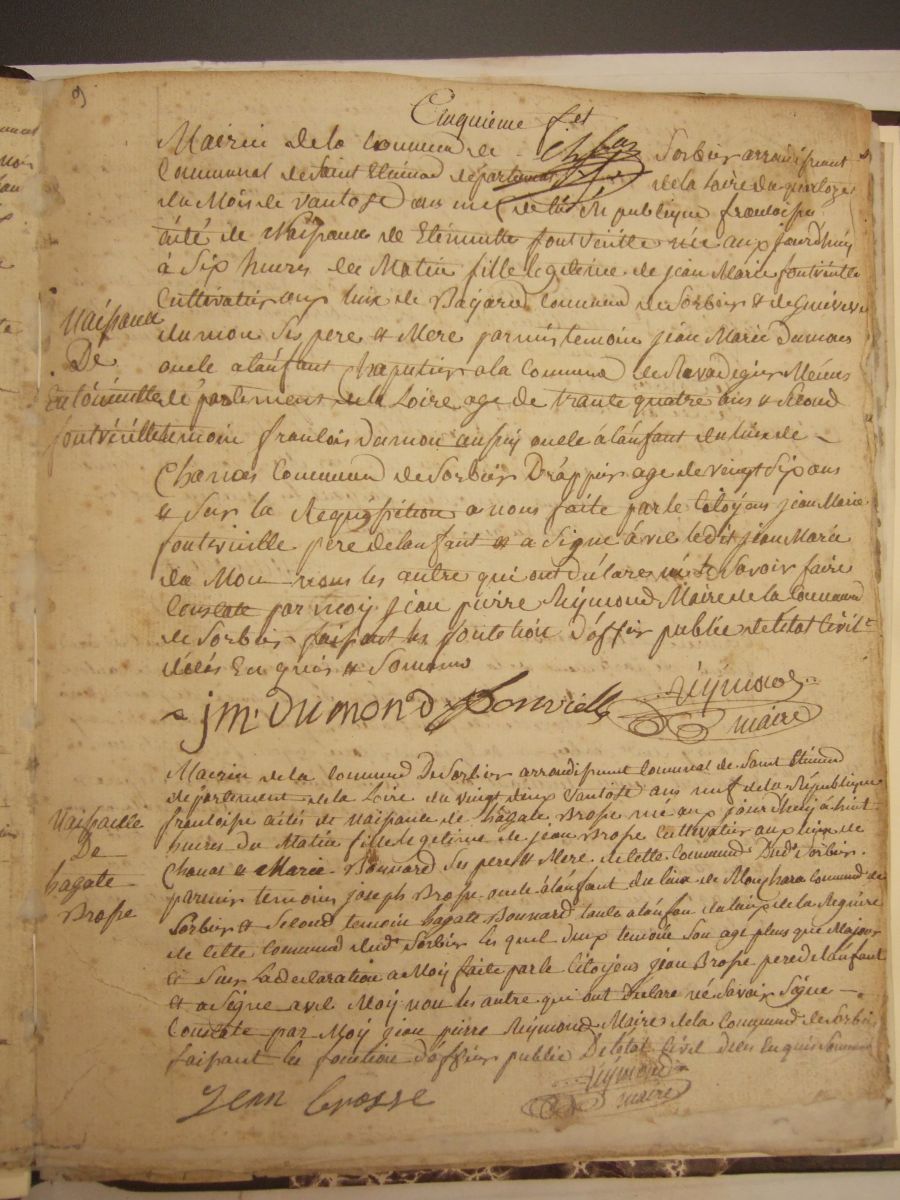 9
Cinquième f.et
Mairin de la Commund de Sorbier arrondisrment
Communal de Saint Etienné département de la Loire du quatorze
du Mois de vantose an neuf de la République francloise
acté de Naissance de Etiennette fontvieille née aux jourdhuij
à Six hures du Matin fille legitime de jean Marie fontvieille
Cultivatier aux lieux de Bayard Commund de Sorbier & de
dumon Ses père & Mere parmis temoin jean Marie dumons
oncle a lanfant Chaputier a la Commund de
Naissance
De
Etiénnette
fontvieille
département de la Loire age de trante quatre ans & Second
temoin francois dumon aussij oncle à lanfant du lieux de
Chanas Commund de Sorbier Drappier age de vingt Six ans
& Sur la Requisition a nous faite par le Citoyens jean Marie
fontvieille père de lanfant & a Signé avec ledit jean Marie
du Mon nous les autre qui ont déclare né Savoir faire
Constaté par moij jean pierre Reymond Maire de la Commund
de Sorbier faisant les fonction d'offier public de letat Civil
Reymond
j m. DUMOND fonvielle
maire
Mairin de la Commund De Sorbier arrondisrment Communal de Saint Etiennd
département de la Loire du vingt deux vantose ans neuf de la République
francloise actes de naissance de hagate Brosse né aux jourdhuij à huit
hures du Matin fille legitime de jean Brosse Cultivatier aux lieux de
Chanas & Marie Bonnard Ses pere & Mere de Cette Commund Dud. Sorbier.
Naissance
De
hagate
Brosse
parmis temoins joseph Brosse oncle à lanfant du lieux de Commund de
Sorbier & Second temoin hagate Bonnard tante a lanfan du lieux de la
de Cette Commund dud. Sorbier les quel deux temoin Son age plus que Majour
& Sur la declaration a Moij faite par le Citoyens jean Brosse pere de lanfant
& a Signe avec Moij non les autre qui ont Déclare né Savoir Signe
Constaté par Moij jean pierre Reymond Maire de la Commund de Sorbier
faisant les fonction d'offier public De letat Civil
Reymond
maire
Jean brosse